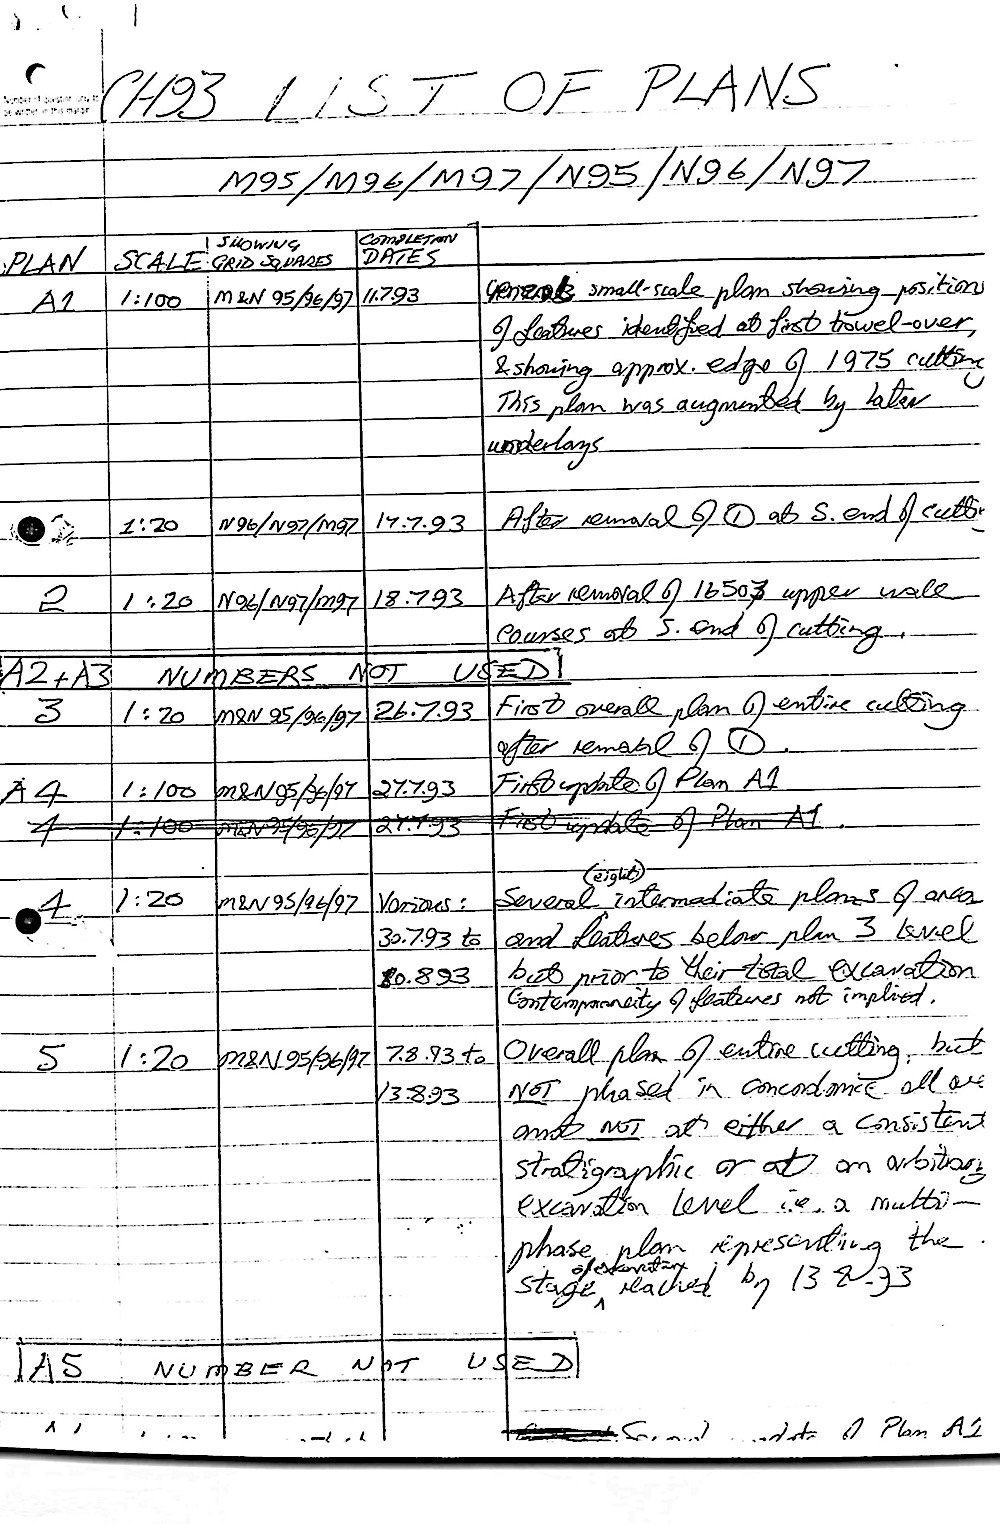 Number of question only to
be written in this margin
CH93 LIST OF PLANS
M95/M96/M97/N95/N96/N97
PLAN SCALE SHOWING GRID SQUARES COMPLETION DATES
A1 1:100 M&N 95/96/97 11.7.93 General small-scale plan showing positions
of features identified at first trowel-over,
& showing approx. edge of 1975 cutting
This plan was augmented by later
underlays
1:20 N96/N97/M97 17.7.93 After removal of ① at S. end of cutting
2 1:20 N96/N97/M97 18.7.93 After removal of 16503 upper wall
courses at S. end of cutting.
A2+A3 NUMBERS NOT USED
3 1:20 M&N 95/96/97 26.7.93 First overall plan of entire cutting
after removal of ①.
A4 1:100 M&N95/96/97 27.7.93 First update of Plan A1
4 1:100 M&N95/96/97 27.7.93 First update of Plan A1.
(eight)
4 1:20 M&N95/96/97 Various: Several intermediate plans of area
30.7.93 to and features below plan 3 level
10.8.93 but prior to their total excavation
Contemporaneity of features not implied.
5 1:20 M&N95/96/97 7.8.93 to Overall plan of entire cutting, but
13.8.93 NOT phased in concordance all are
and NOT at either a consistent
stratigraphic or at an arbitrary
excavation level i.e. a multi-
phase plan representing the
of excavation
stage reached by 13 8.93
A5 NUMBER NOT USED
Second update of Plan A1